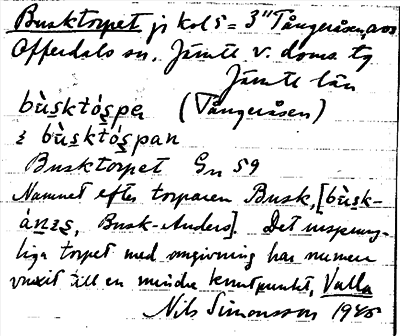 Busktorpet, jr kol 5 = 3" Tångeråsen, avs
Offerdals sn, Jämtl v. doms. tg
Jämtl län
bùsktós̱pe̱ (Tångeråsen)
i bùs̱któs̱pan
Busktorpet Gn 59
Namnet efter torparen Busk, [bùs̱k-
ánəs, Busk-Anders]. Det ursprung-
liga torpet med omgivning har numer
vuxit till en mindre knutpunkt, Valla
Nils Simonsson 1945